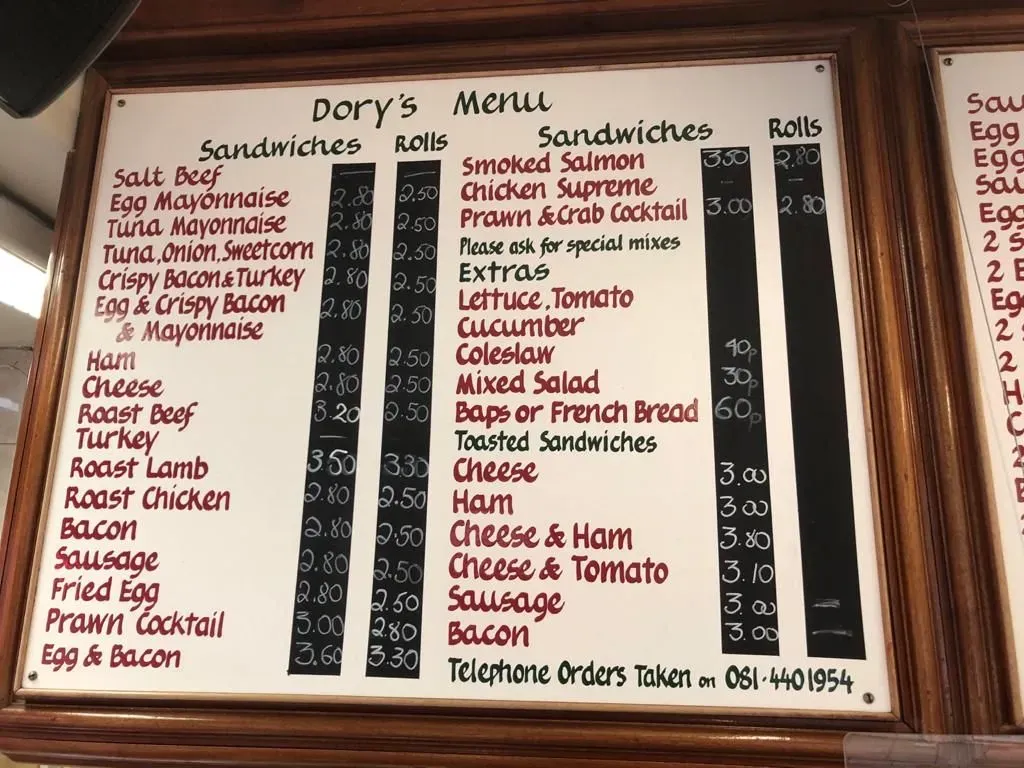 Dory's Menu
Sandwiches Rolls
Salt Beef — —
Egg Mayonnaise 2.80 2.50
Tuna Mayonnaise 2.80 2.50
Tuna, Onion, Sweetcorn 2.80 2.50
Crispy Bacon & Turkey 2.80 2.50
Egg & Crispy Bacon 2.80 2.50
& Mayonnaise
Ham 2.80 2.50
Cheese 2.80 2.50
Roast Beef 3.20 2.50
Turkey —
Roast Lamb 3.50 3.30
Roast Chicken 2.80 2.50
Bacon 2.80 2.50
Sausage 2.80 2.50
Fried Egg 2.80 2.50
Prawn Cocktail 3.00 2.80
Egg & Bacon 3.60 3.30
Sandwiches Rolls
Smoked Salmon 3.50 2.80
Chicken Supreme - -
Prawn & Crab Cocktail 3.00 2.80
Please ask for special mixes
Extras
Lettuce, Tomato
Cucumber
Coleslaw 40p
Mixed Salad 30p
Baps or French Bread 60p
Toasted Sandwiches
Cheese 3.00
Ham 3.00
Cheese & Ham 3.80
Cheese & Tomato 3.10
Sausage 3.00 —
Bacon 3.00 —
Telephone Orders Taken on 081·4401954
Egg
Egg